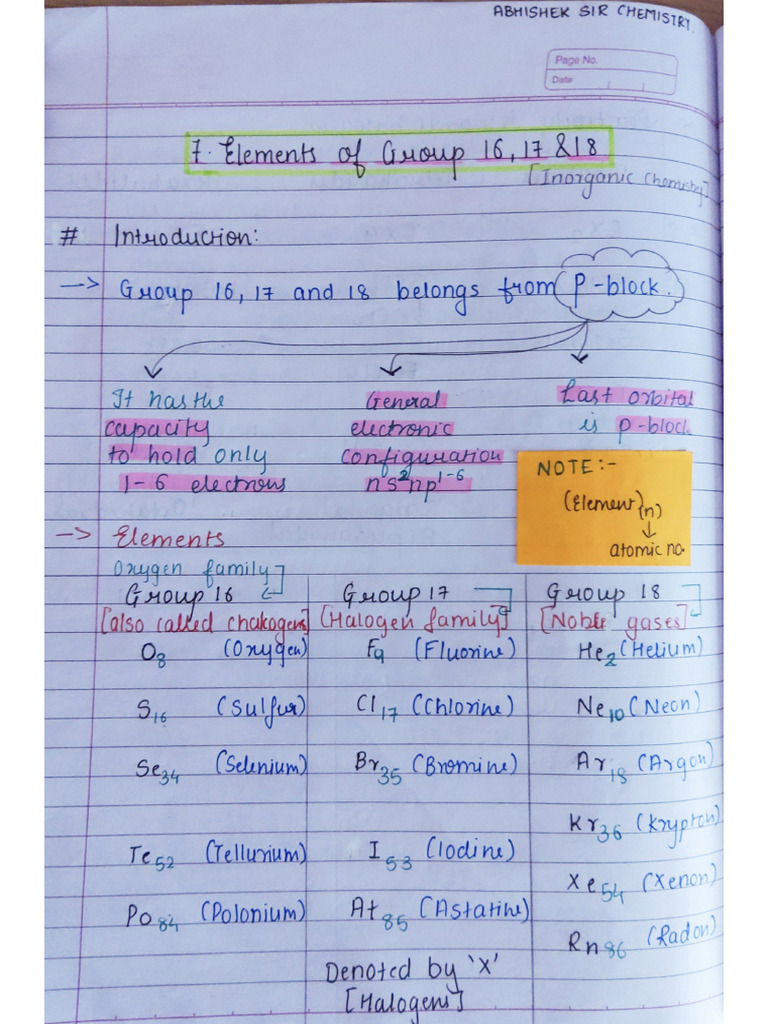 ABHISHEK SIR CHEMISTRY.
Page No.
Date
7. Elements of Group 16, 17 & 18
[Inorganic Chemistry]
# Introduction:
-> Group 16, 17 and 18 belongs from P-block.
It has the capacity to hold only 1-6 electrons
General electronic configuration ns²np¹⁻⁶
Last orbital is p-block
NOTE:-
(Element)(n)
↓
atomic no.
-> Elements
Oxygen family
Group 16 Group 17 Group 18
[also called chakogens] [Halogen family] [Noble gases]
O₈ (Oxygen) F₉ (Fluorine) He₂ (Helium)
S₁₆ (Sulfur) Cl₁₇ (Chlorine) Ne₁₀ (Neon)
Se₃₄ (Selenium) Br₃₅ (Bromine) Ar₁₈ (Argon)
Kr₃₆ (Krypton)
Te₅₂ (Tellurium) I₅₃ (Iodine)
Xe₅₄ (Xenon)
Po₈₄ (Polonium) At₈₅ (Astatine)
Rn₈₆ (Radon)
Denoted by 'X'
[Halogens]